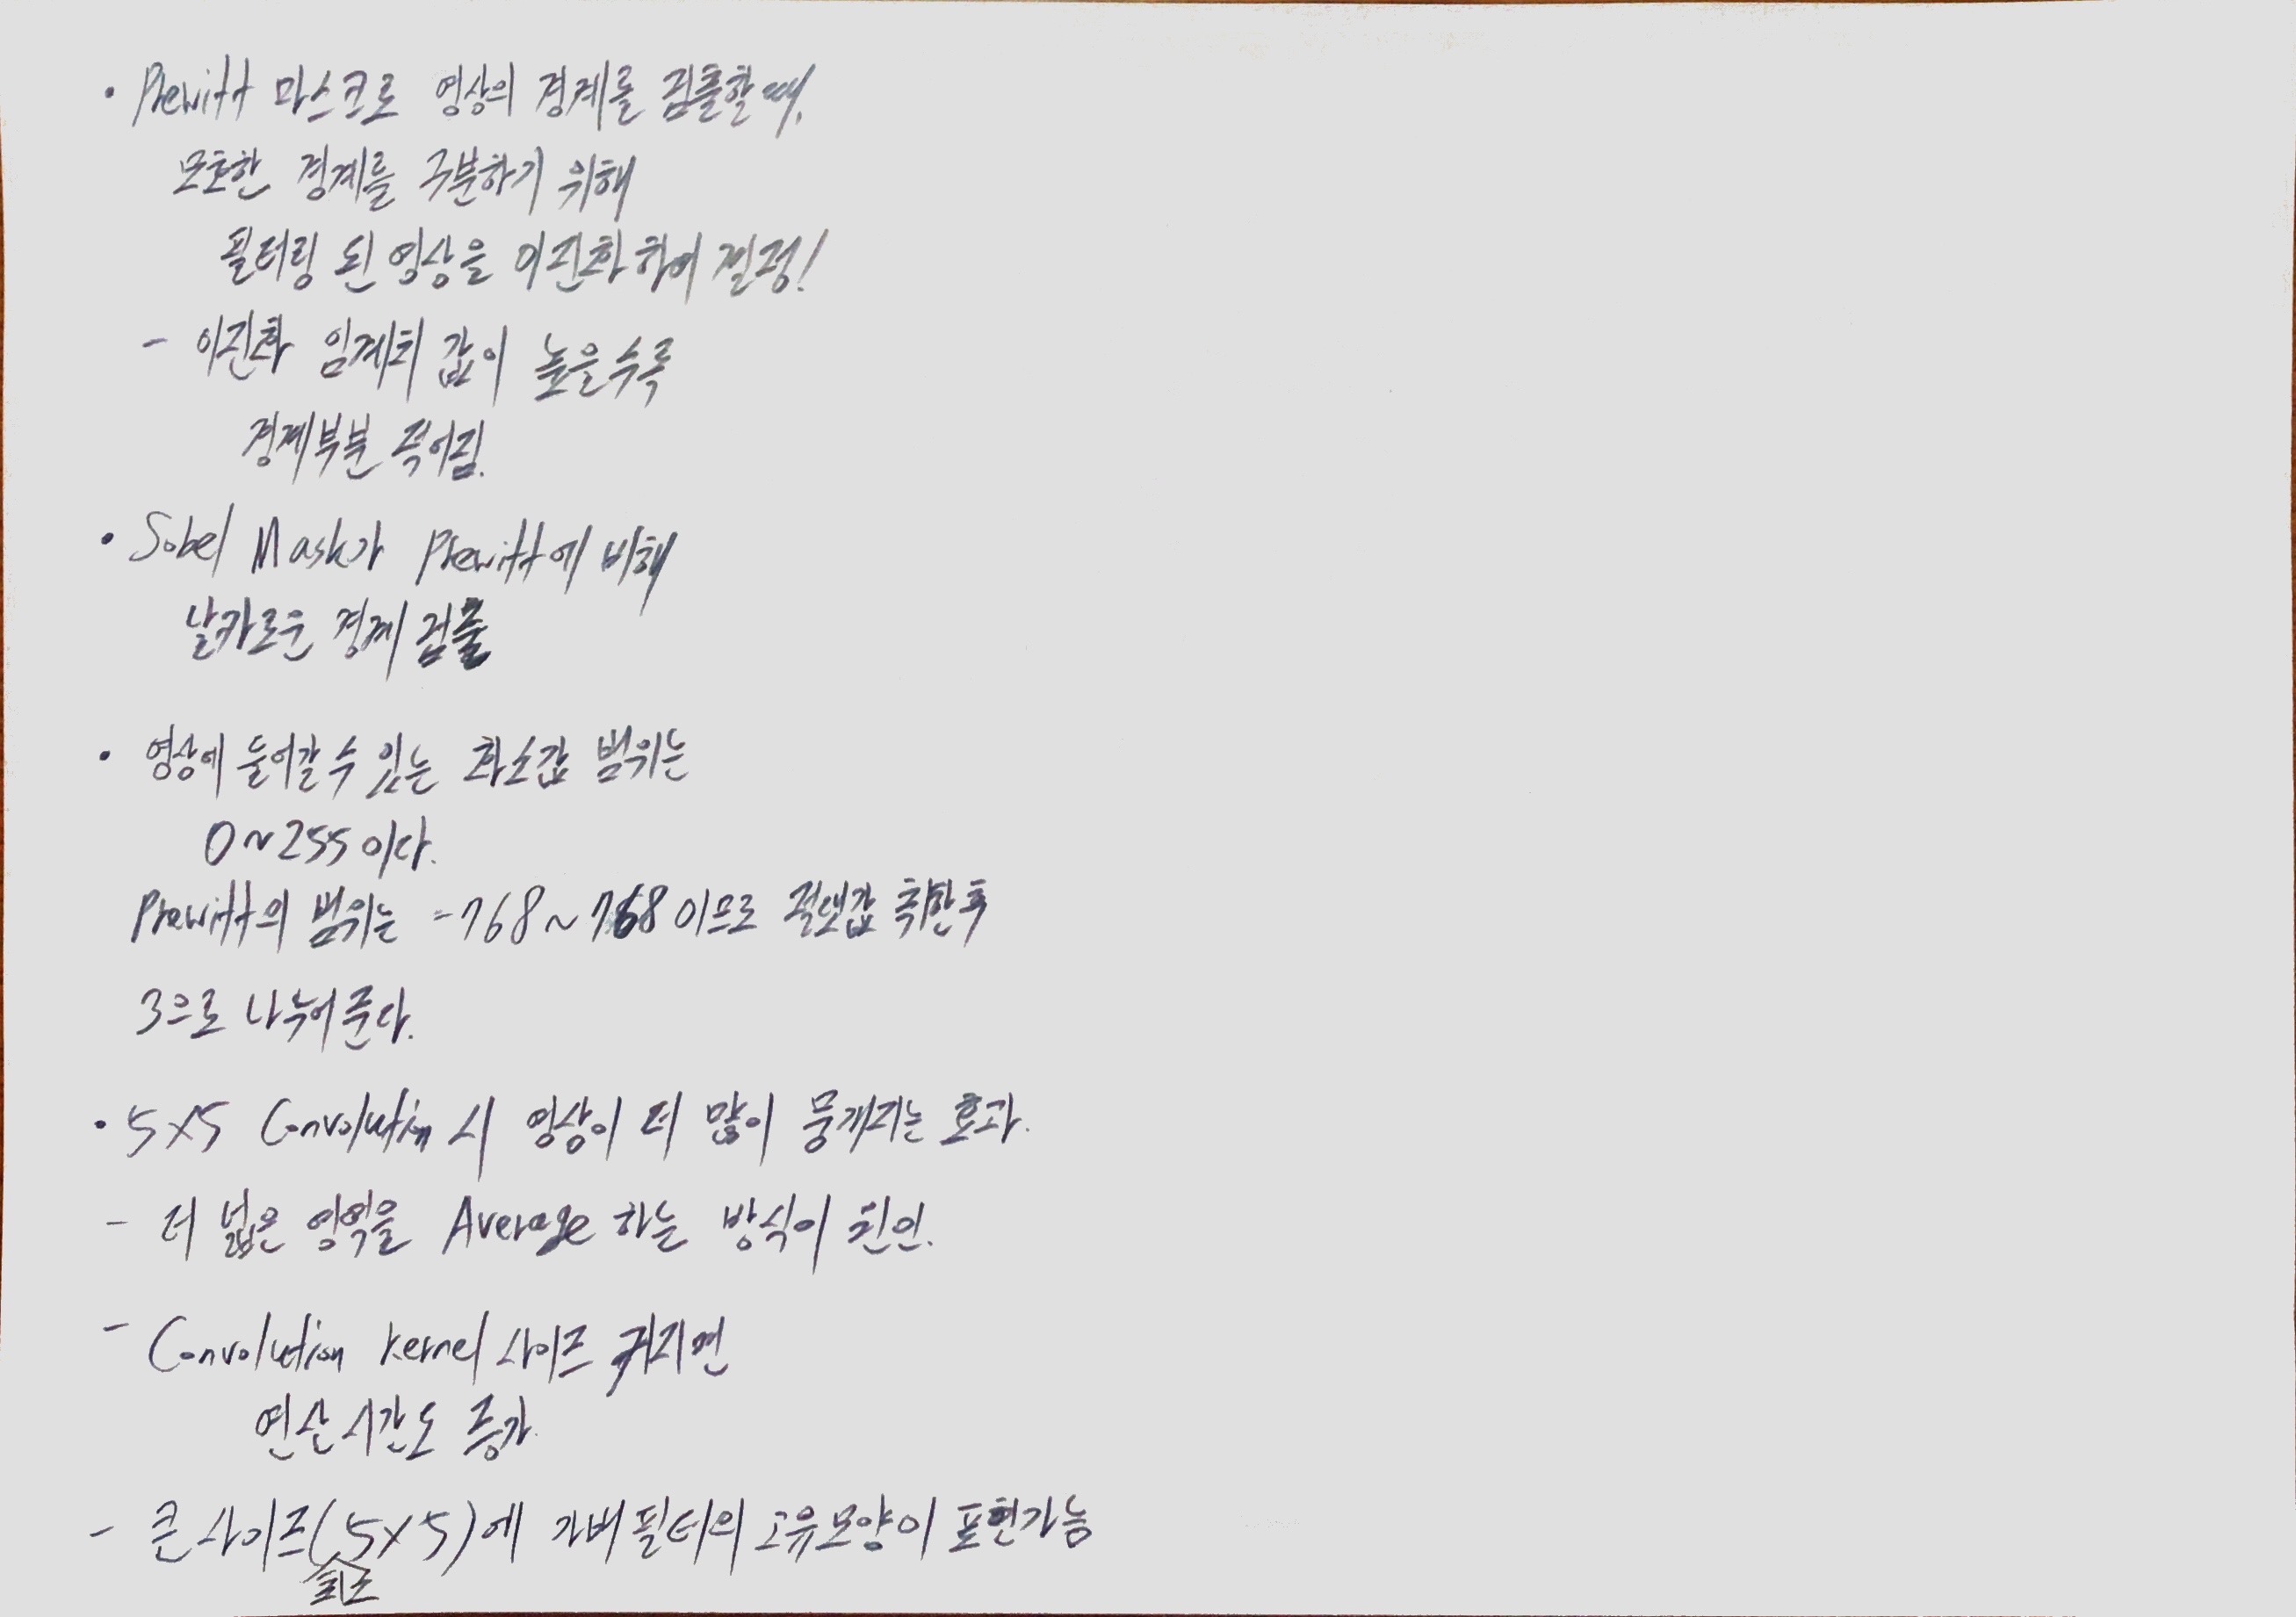 • Prewitt 마스크로 영상의 경계를 검출할 때,
모호한 경계를 구분하기 위해
필터링 된 영상을 이진화 하여 결정!
- 이진화 임계치 값이 높을수록
경계부분 적어짐.
• Sobel Mask가 Prewitt에 비해
날카로운 경계 검출
• 영상에 들어갈 수 있는 화소값 범위는
0~255 이다.
Prewitt의 범위는 -768~768 이므로 절댓값 취한 후
3으로 나누어 준다.
• 5×5 Convolution 시 영상이 더 많이 뭉개지는 효과.
- 더 넓은 영역을 Average 하는 방식이 원인.
- Convolution kernel 사이즈 커지면
연산 시간도 증가.
- 큰 사이즈(5×5)에 가버 필터의 고유모양이 표현가능
최소